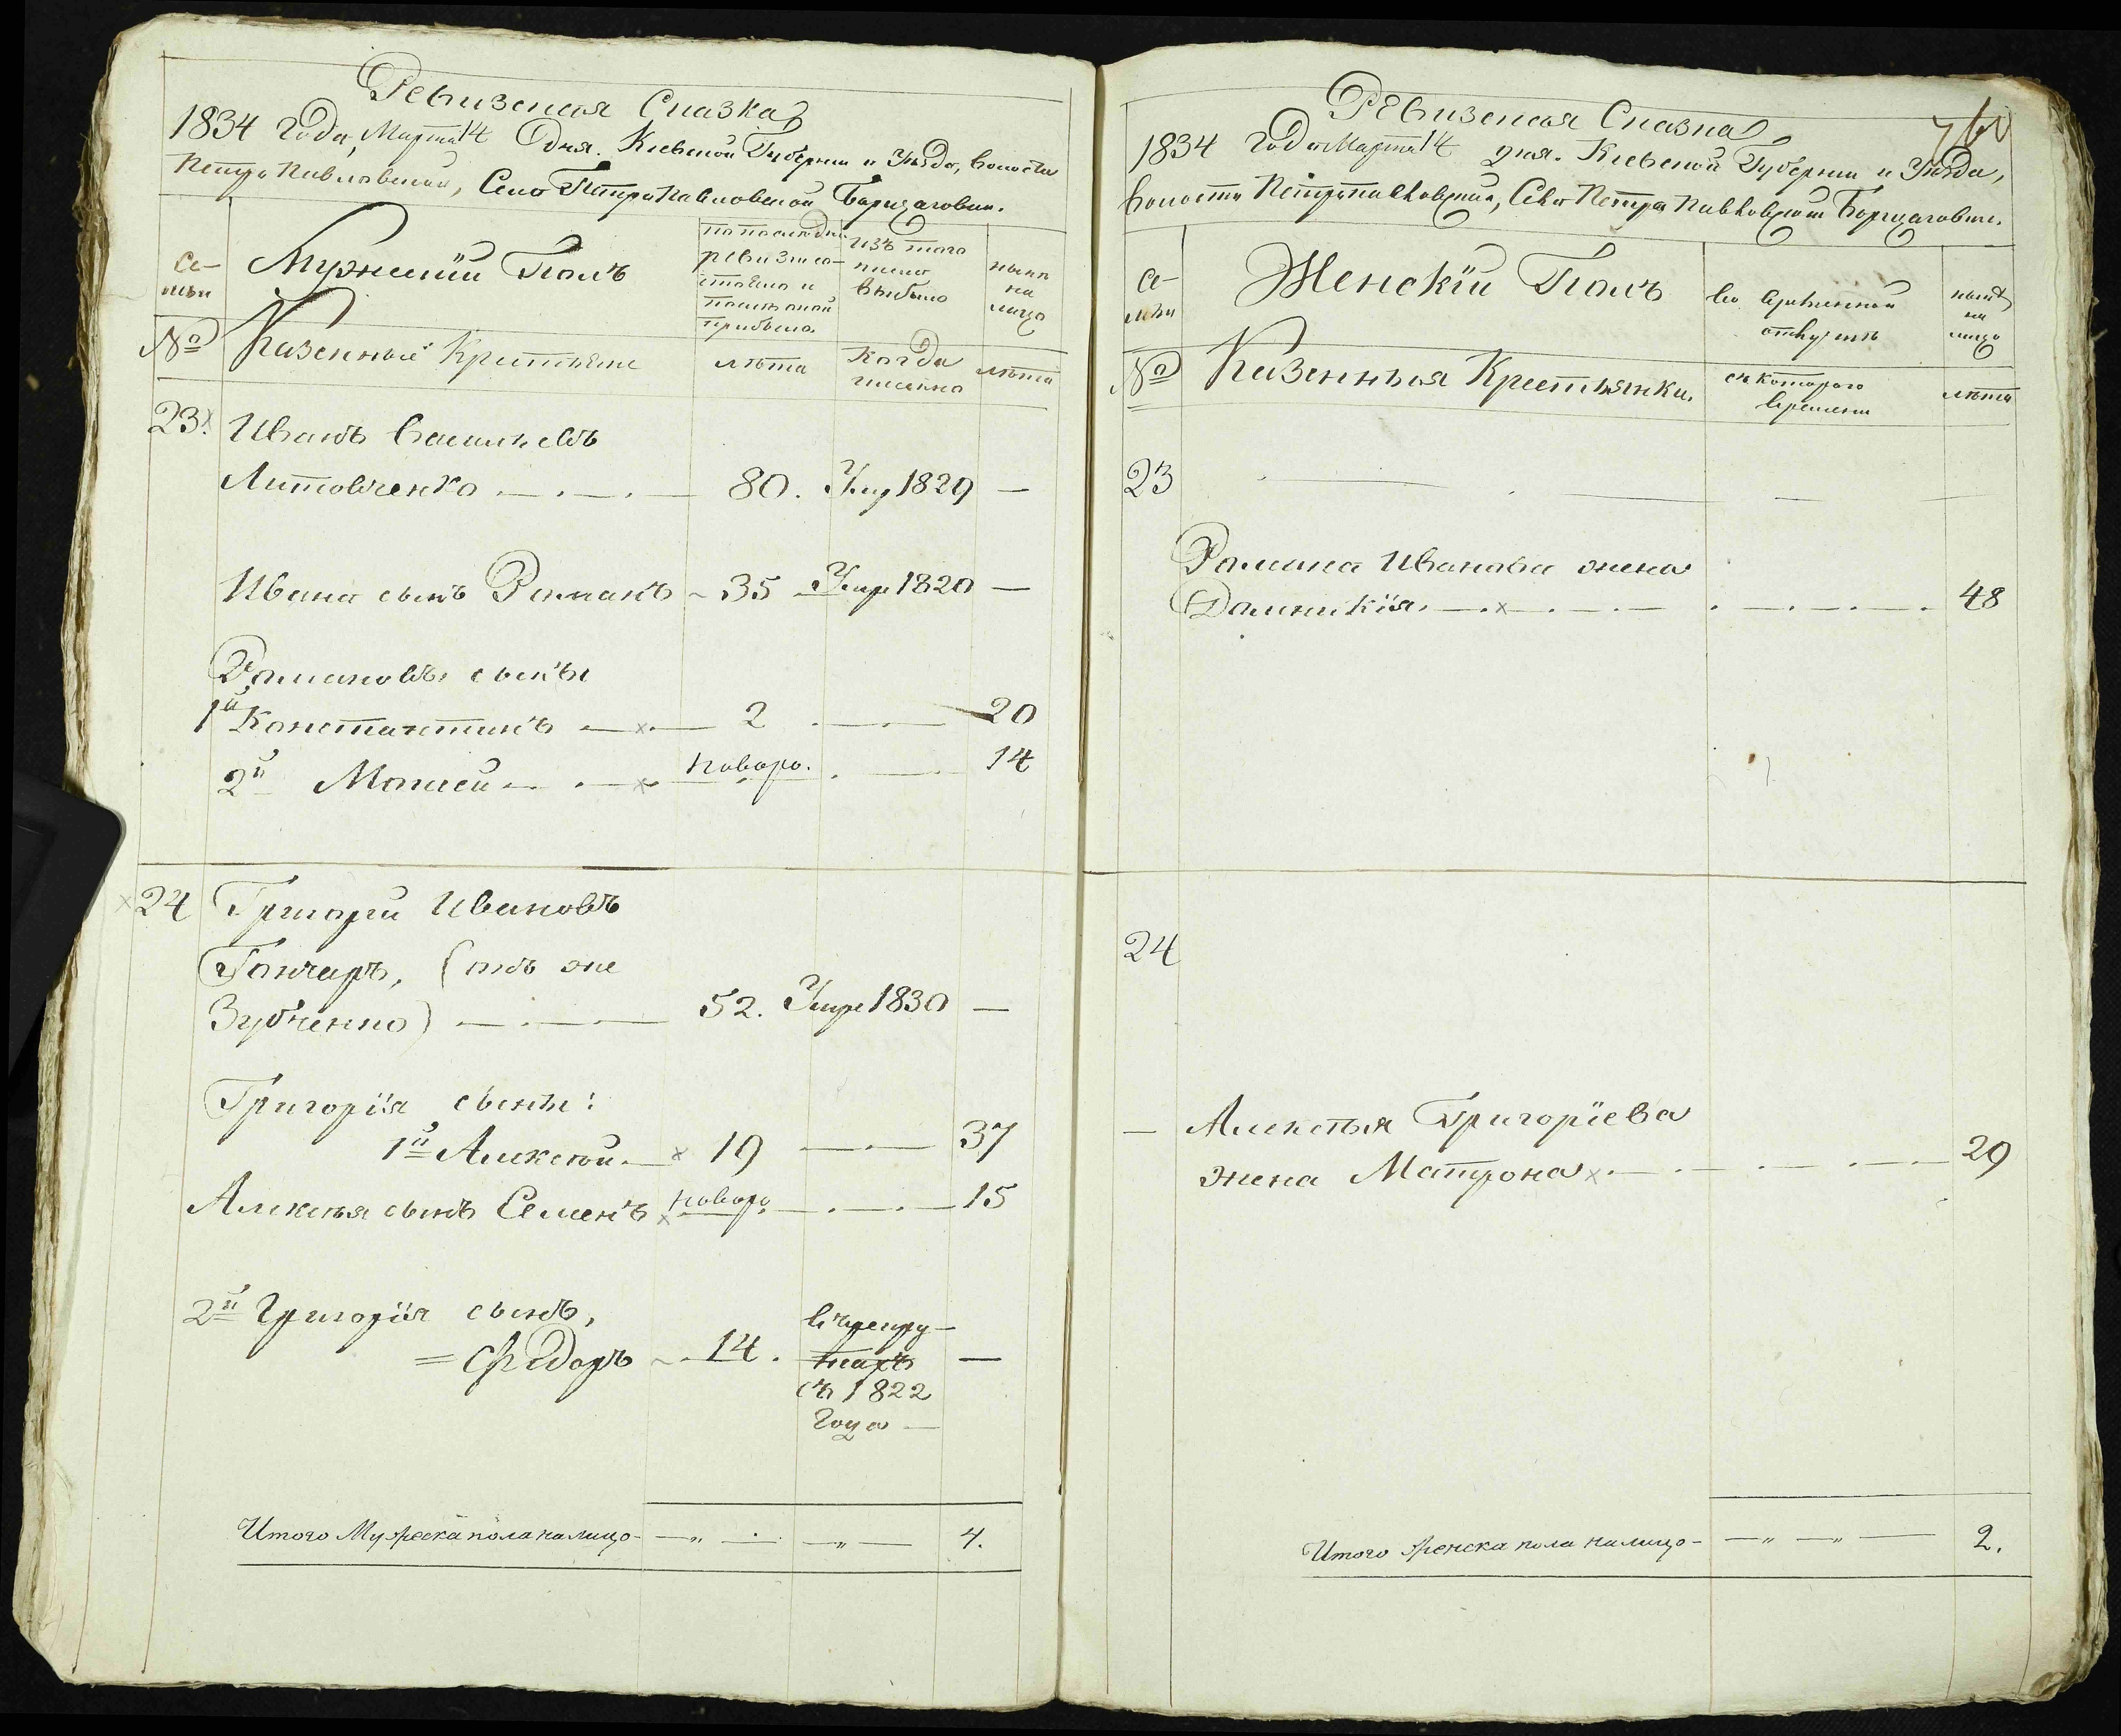 Ревизская Сказка
1834 года, Марта 14 Дня. Киевской Губернии и Уезда, волости
Петропавловской, Село Петропавловской Борщаговки.
Се-
мьи
Мужеский Полъ
по последней
ревизіи со-
стояло и
после оной
прибыло
Изъ того
число
выбыло
ныне
на
лицо
№
Казенные Крестьяне
лѣта
Когда
именно
лѣта
23. Иванъ Васильевъ
Литовченко 80. Умр 1829 —
Ивана сынъ Романъ 35 Умре 1820 —
Романовы сыны
1й Константинъ 2 20
2й Моисей новоро. 14
24 Григорій Ивановъ
Гончаръ, (онъ же
Зубченко) 52. Умре 1830 —
Григорія сыны:
1й Алексѣй 19 37
Алексѣя сынъ Семенъ новоро 15
2й Григорія сынъ,
= Федоръ 14. въ рекру-
тахъ —
съ 1822
Года —
Итого Мужеска пола налицо 4.
Ревизская Сказка
760
1834 Года Марта 14 дня. Киевской Губернии и Уезда,
Волости Петропавловской, Село Петропавловской Борщаговки.
Се-
мьи
Женскій Полъ
во временной
отлучкѣ
нынѣ
на
лицо
№
Казенныя Крестьянки.
съ которого
времени
лѣта
23
Романа Иванова жена
Домникія 48
24
— Алексѣя Григоріева
жена Матрона 29
Итого женска пола налицо 2.